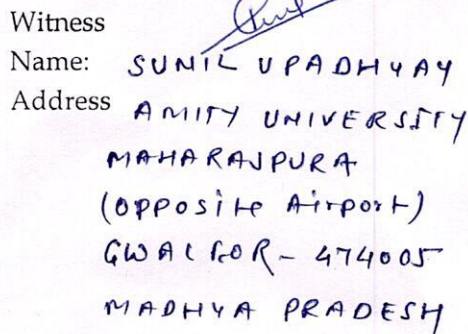 Witness
Name: SUNIL UPADHYAY
Address AMITY UNIVERSITY
MAHARAJPURA
(OPPOSITE Airport)
GWALIOR - 474005
MADHYA PRADESH